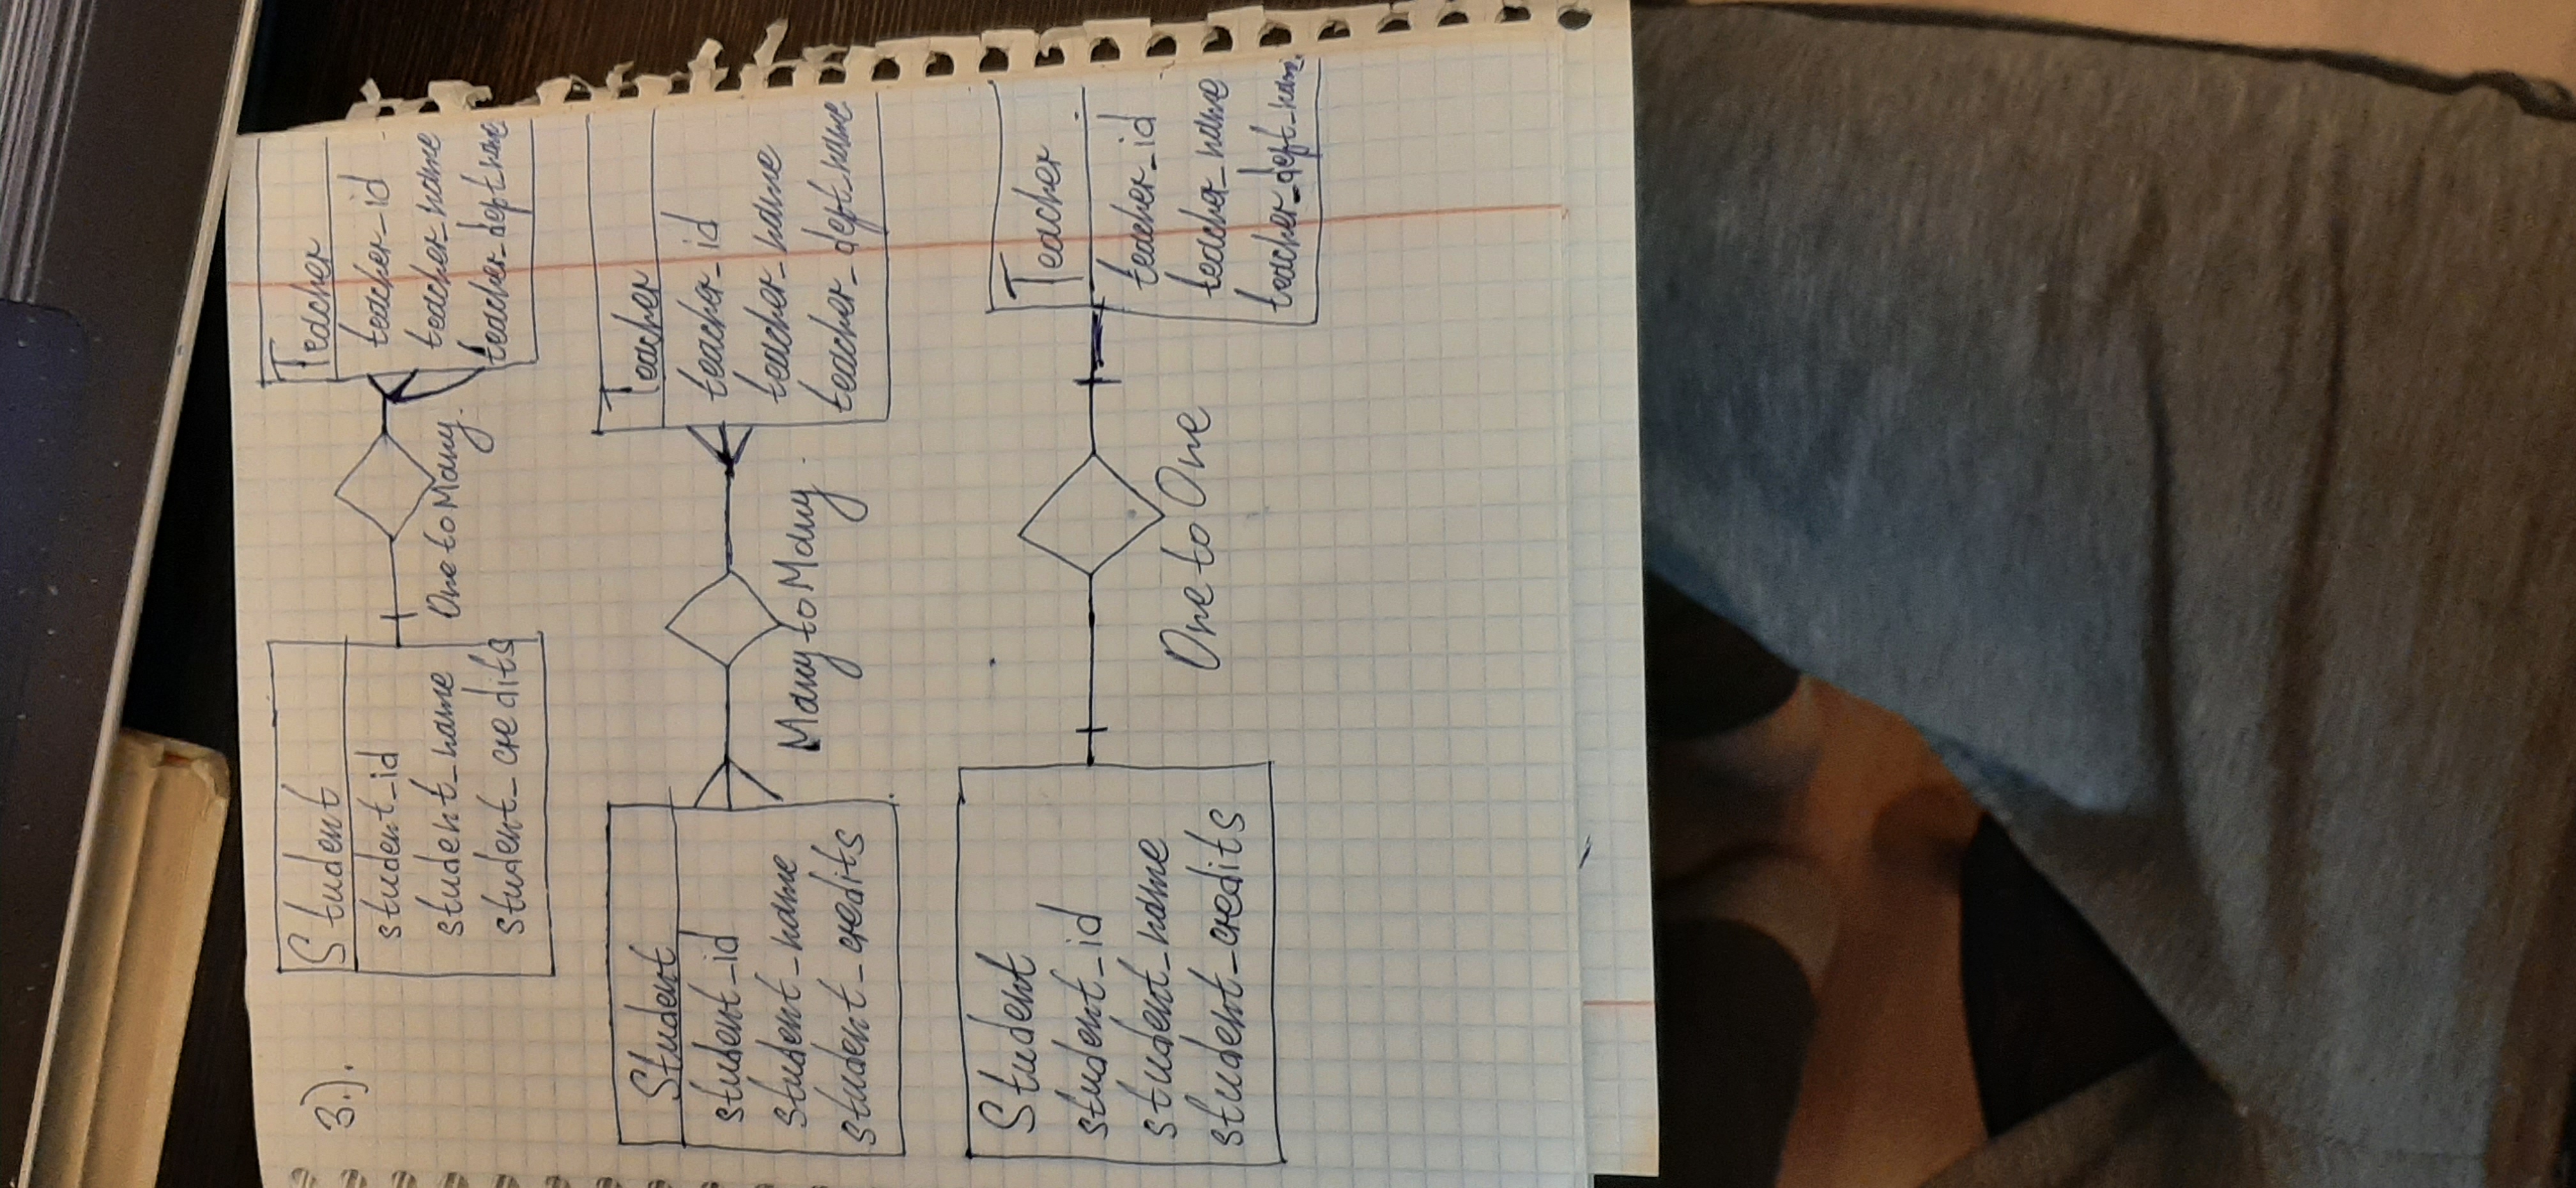 3.).
Student
student_id
student_name
student_credits
One to Many.
Teacher
teacher_id
teacher_name
teacher_dept_name
Student
student_id
student_name
student_credits
Many to Many
Teacher
teacher_id
teacher_name
teacher_dept_name
Student
student_id
student_name
student_credits
One to One
Teacher
teacher_id
teacher_name
teacher_dept_name